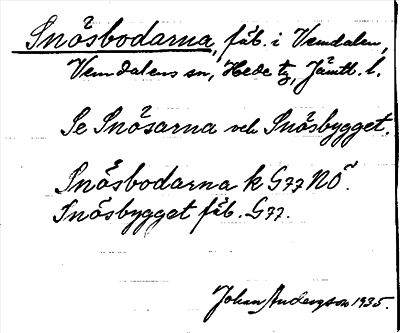 Snösbodarna, fäb. i Vemdalen,
Vemdalens sn, Hede tg, Jämtl. l.
Se Snösarna och Snösbygget.
Snösbodarna k G77 NÖ.
Snösbygget fäb. G77.
Johan Anderzson 1935.